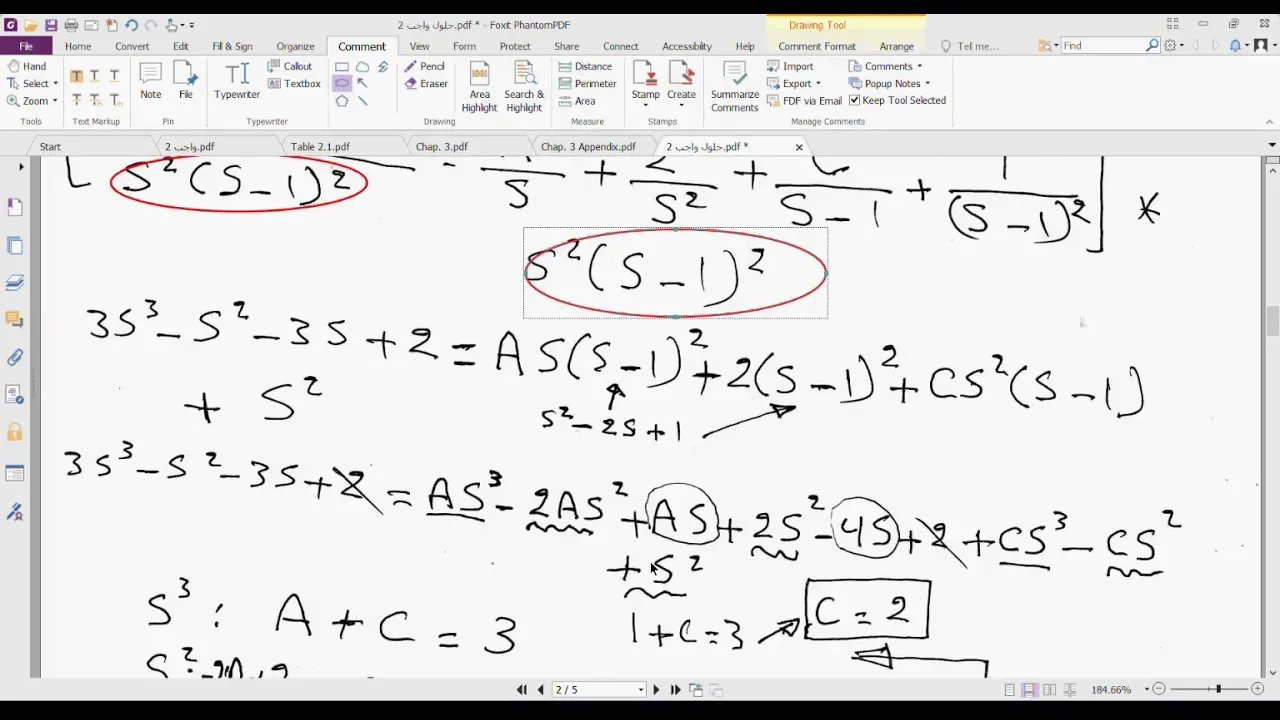 2 حلول واجب.pdf * - Foxit PhantomPDF
Drawing Tool
File Home Convert Edit Fill & Sign Organize Comment View Form Protect Share Connect Accessibility Help Comment Format Arrange Tell me... Find
Hand Select Zoom
Tools
T T T
Text Markup
Note File
Pin
Typewriter Callout Textbox
Typewriter
Pencil Eraser Area Highlight Search & Highlight
Drawing
Distance Perimeter Area
Measure
Stamp Create
Stamps
Summarize Comments Import Export FDF via Email Comments Popup Notes Keep Tool Selected
Manage Comments
Start
2 واجب.pdf
Table 2.1.pdf
Chap. 3.pdf
Chap. 3 Appendix.pdf
2 حلول واجب.pdf *
S²(S-1)² S + S² + S-1 + (S-1)² ] *
S²(S-1)²
3S³-S²-3S+2 = AS(S-1)²+2(S-1)²+CS²(S-1)
+ S²
S²-2S+1
3S³-S²-3S+2 = AS³-2AS²+AS+2S²-4S+2+CS³-CS²
+S²
S³: A+C=3
1+C=3
C=2
2 / 5
184.66%